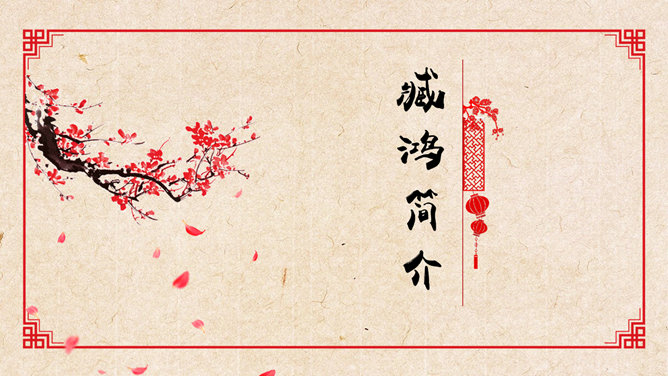 臧鸿简介